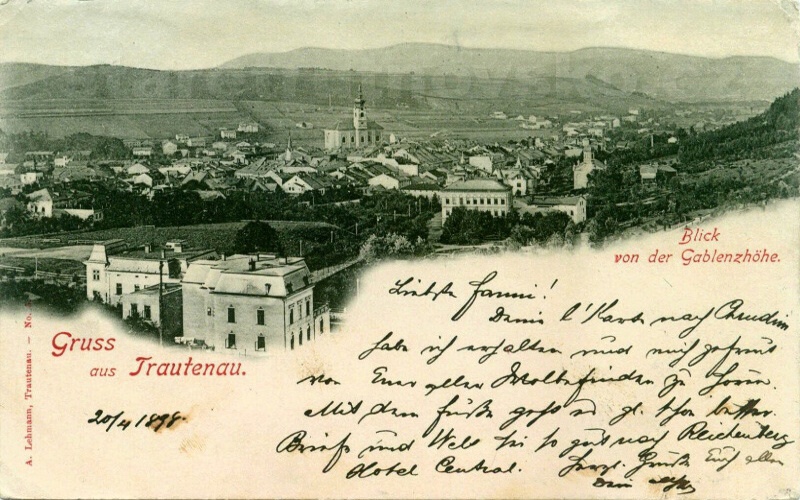 Blick
von der Gablenzhöhe.
Gruss
aus Trautenau.
A. Lehmann, Trautenau. – No.
20/4 1898
Liebste Fanni!
Deine l' Karte nach Chrudim
habe ich erhalten und mich gefreut
von Euer aller Wolbefinden zu hören.
Mit dem Füße geht es g. l. schon besser.
Briefe und sei so gut nach Reichenberg
Hotel Central. Herzl. Grüße Euch allen
Dein